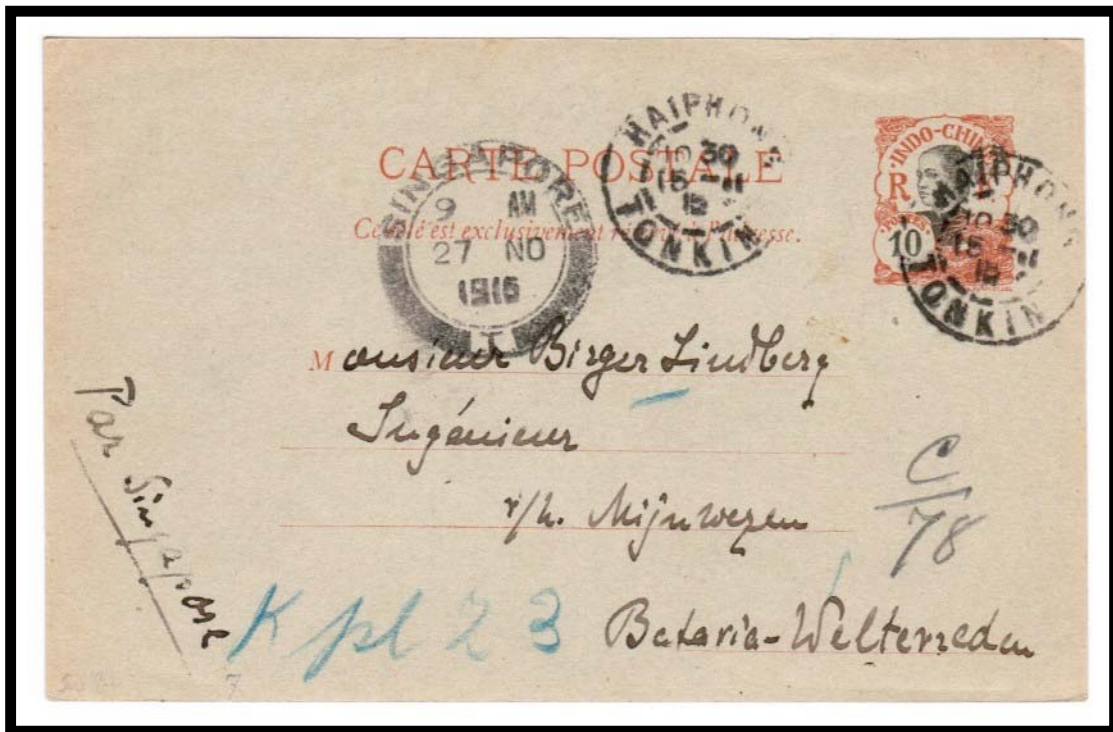 CARTE POSTALE
Ce côté est exclusivement réservé à l'adresse.
HAIPHONG
10 30
15 -11
TONKIN
SINGAPORE
9 AM
27 NO
1916
T
INDO-CHINE
R F
POSTES
10
HAIPHONG
10 30
15 -11
TONKIN
Monsieur Birger Lindberg
Ingénieur
r/h. Mijnwezen
Batavia-Weltevreden
Par Singapore
C/78
K pl 2 3
7